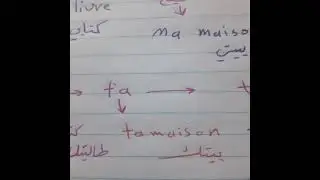 livre
كتابي ma maiso
بيتي
ta
tamaison
بيتك